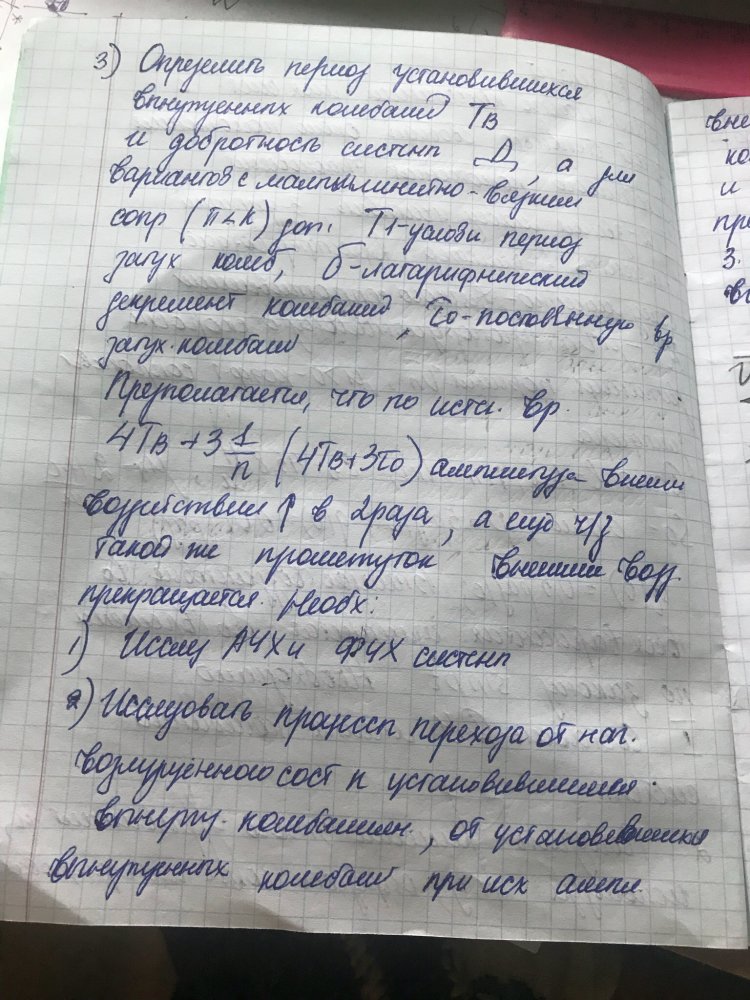 3) Определить период установившихся
вынужденных колебаний Tв
и добротность системы Д, а для
вариантов с малым линейно-вязким
сопр (n<k) доп. T1-условн период
затух колеб, δ-логарифмический
декремент колебаний, τ0-постоянную вр
затух. колебаний
Предполагается, что по исте. вр.
4Tв+3 1/n (4Tв+3τ0) амплитуда внешн
воздействия ↑ в 2 раза, а ещё ч/з
такой же промежуток внешнии возд.
прекращается. Необх:
1) Исслед АЧХ и ФЧХ системы
2) Исследовать процессы перехода от нач.
возмущённого сост к установившимся
вынужд. колебаниям, от установившихся
вынужденных колебаний при исх ампл.
вне
ко
и
пре
3.